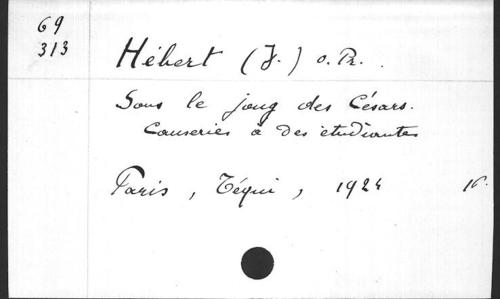 69
313
Hébert (J.) o. Pr.
Sous le joug des Césars.
Causeries à des étudiantes
Paris, Téqui, 1924 16.